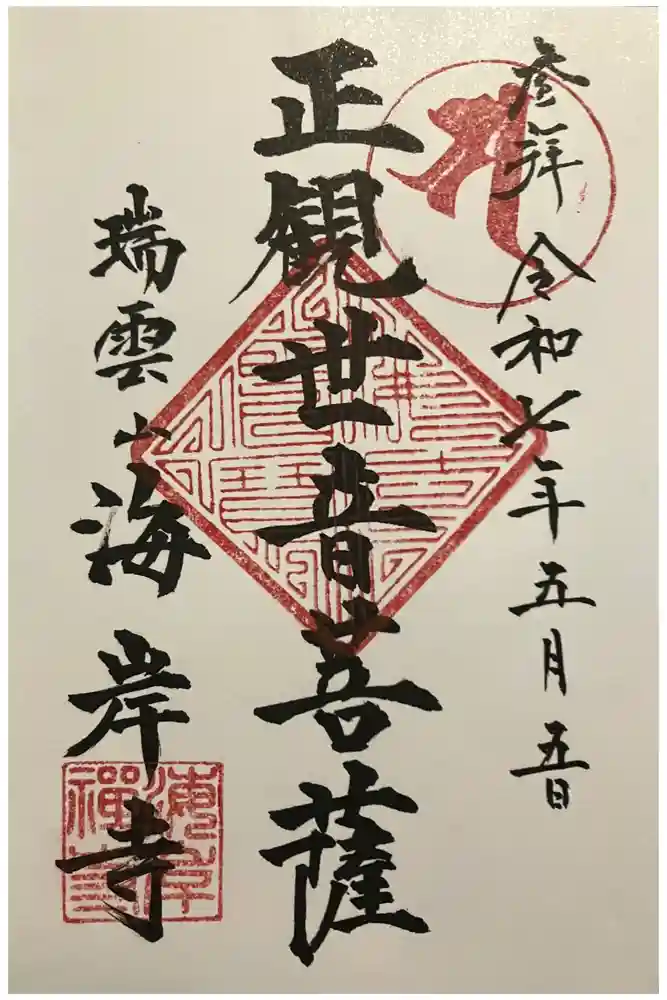 参拝 令和七年五月五日
正観世音菩薩
瑞雲山 海岸寺